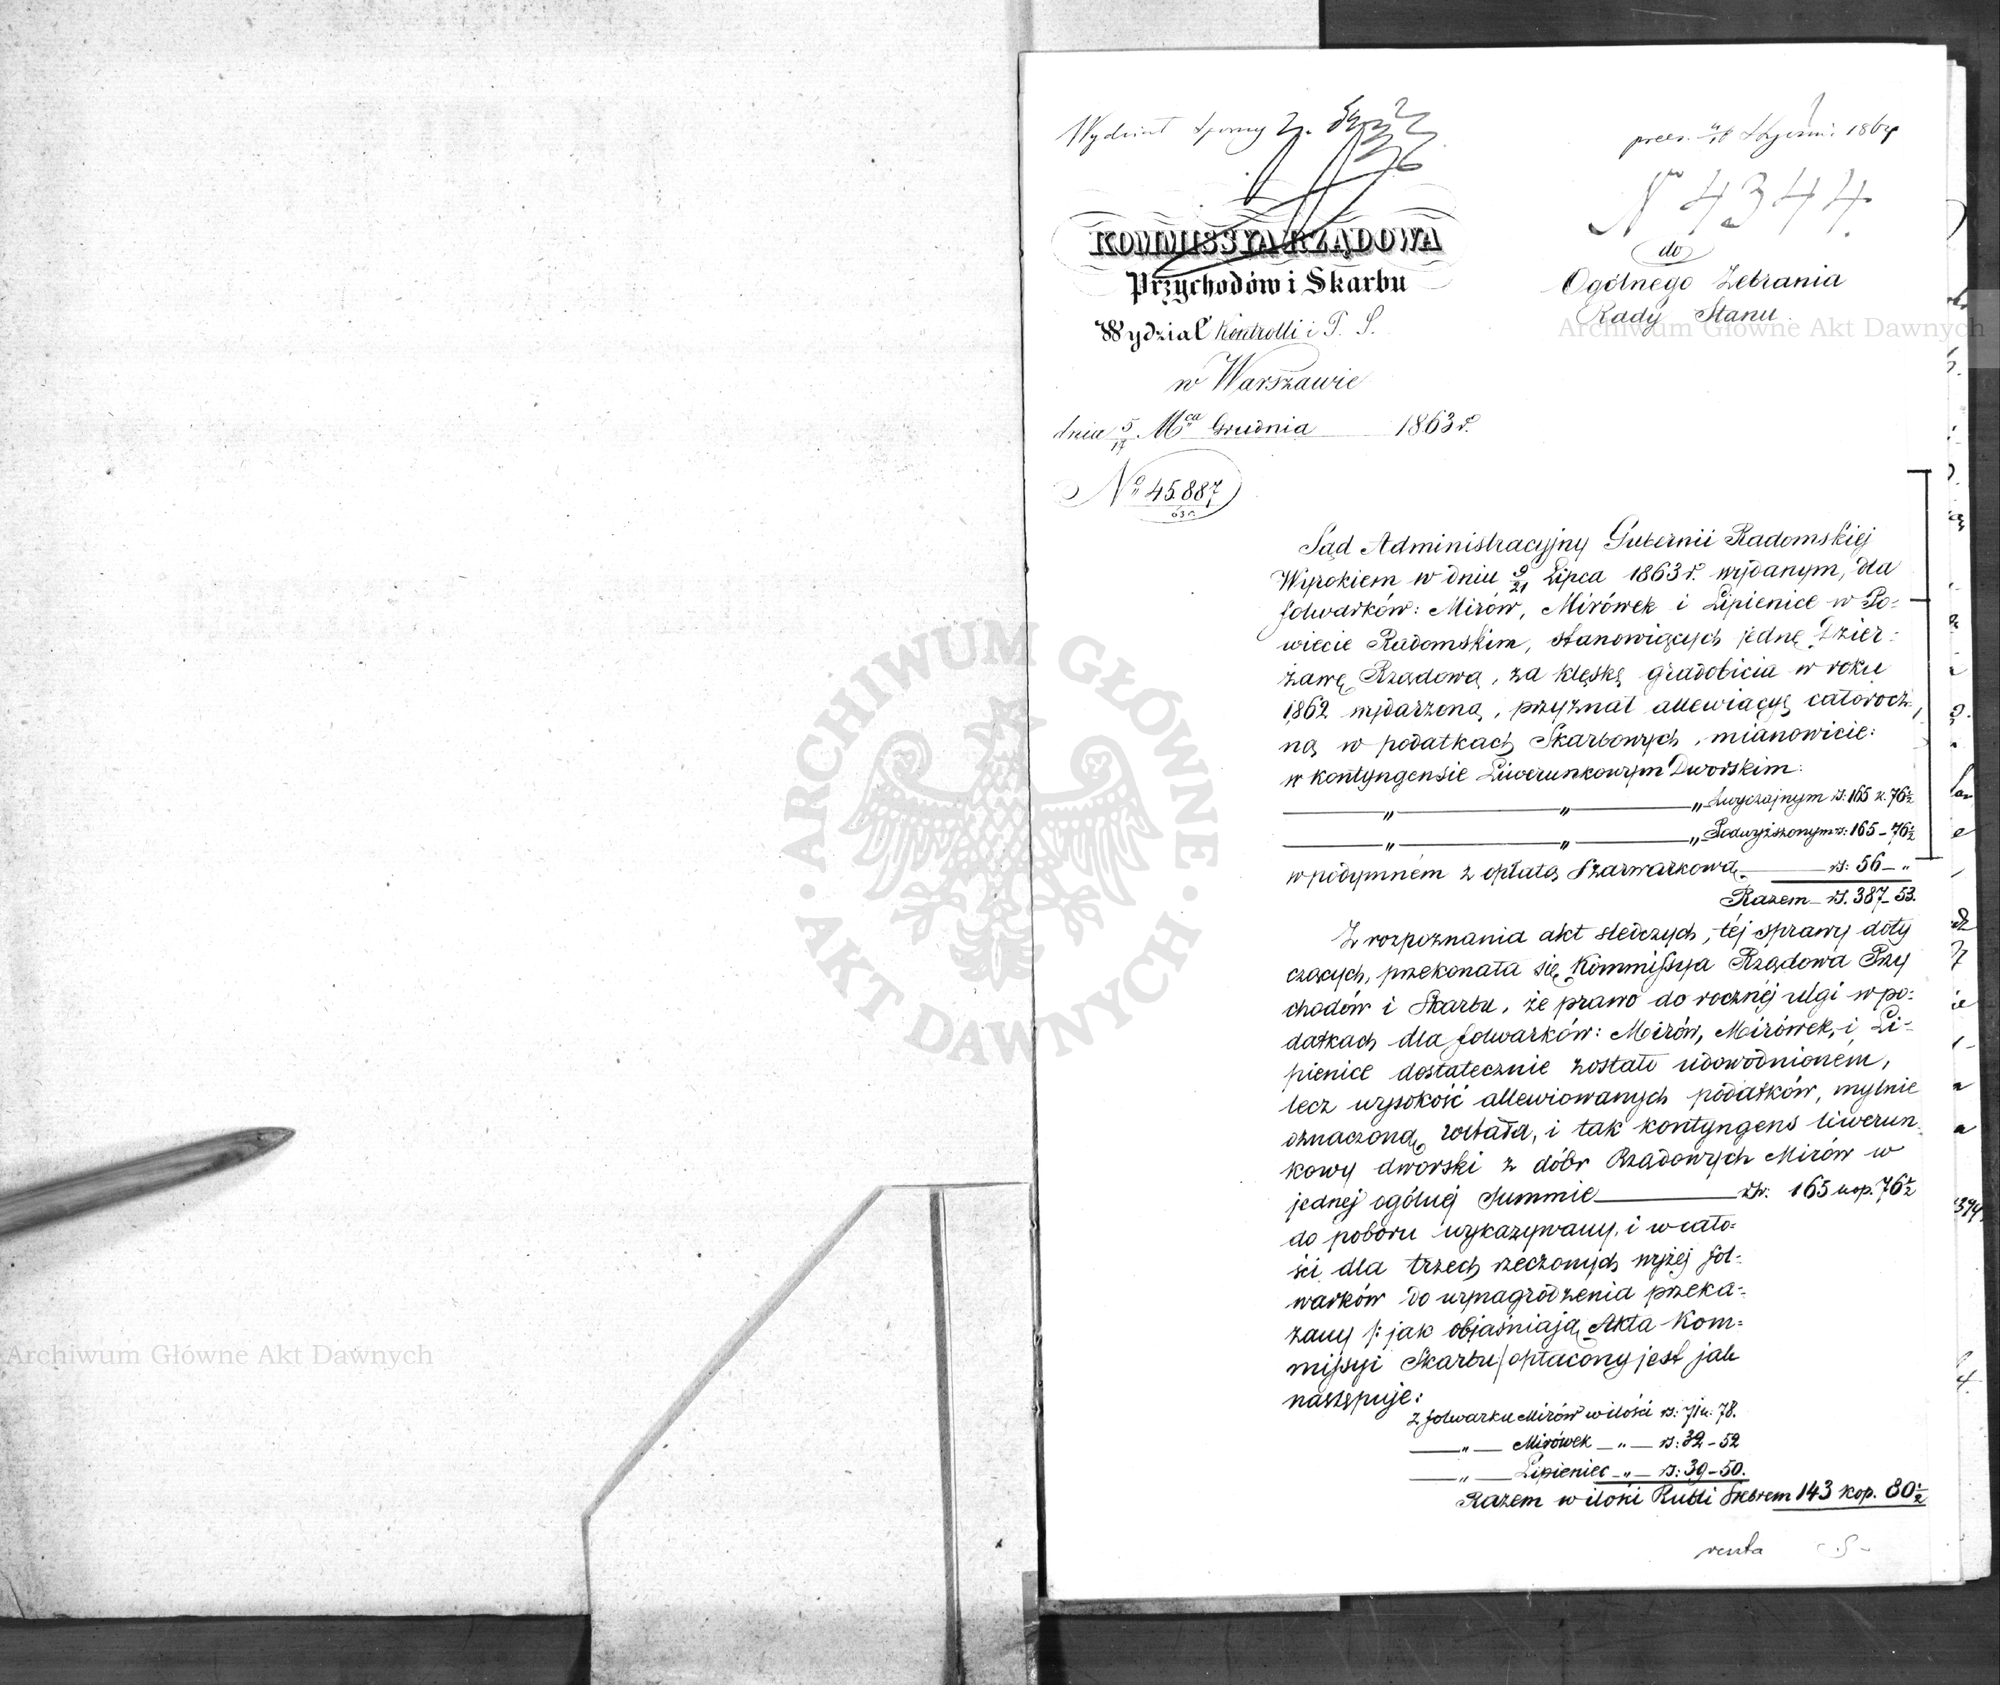 Wydział Sporny
praes. 4/16 Stycznia 1864
N 4344.
KOMMISSYA RZĄDOWA
Przychodów i Skarbu
Wydział Kontrolli i P. S.
w Warszawie
dnia 5/17 Mca Grudnia 1863 r.
No 45.887
do
Ogólnego Zebrania
Rady Stanu.
Sąd Administracyjny Gubernii Radomskiej
Wyrokiem w dniu 9/21 Lipca 1863 r. wydanym, dla
folwarków: Mirów, Mirówek i Lipienice w Po-
wiecie Radomskim, stanowiących jednę Dzier-
żawę Rządową, za klęskę gradobicia w roku
1862 wydarzoną, przyznał allewiacyę całorocz-
ną w podatkach Skarbowych, mianowicie:
w kontyngensie Liwerunkowym Dworskim:
" " " Zwyczajnym rs: 165 k. 76½
" " " Podwyższonym rs: 165 – 76½
w podymném z opłatą Szarwarkową rs: 56 – "
Razem rs. 387 – 53.
Z rozpoznania akt śledczych, téj sprawy doty
czących, przekonała się Kommissya Rządowa Przy
chodów i Skarbu, że prawo do rocznéj ulgi w po-
datkach dla folwarków: Mirów, Mirówek, i Li-
pienice dostatecznie zostało udowodnioném,
lecz wysokość allewiowanych podatków, mylnie
oznaczoną została, i tak kontyngens liwerun
kowy dworski z dóbr Rządowych Mirów w
jednej ogólnej Summie rs. 165 kop. 76½
do poboru wykazywany, i w cało-
ści dla trzech rzeczonych wyżej fol-
warków do wynagrodzenia przeka-
zany /: jak objaśniają Akta Kom-
missyi Skarbu/ opłacony jest jak
następuje:
z folwarku Mirów w ilości rs: 71 k: 78.
" Mirówek " rs: 32 – 52
" Lipieniec " rs: 39 – 50.
Razem w ilości Rubli Srebrem 143 kop. 80½
reszta
Archiwum Główne Akt Dawnych
Archiwum Główne Akt Dawnych
ARCHIWUM GŁÓWNE AKT DAWNYCH